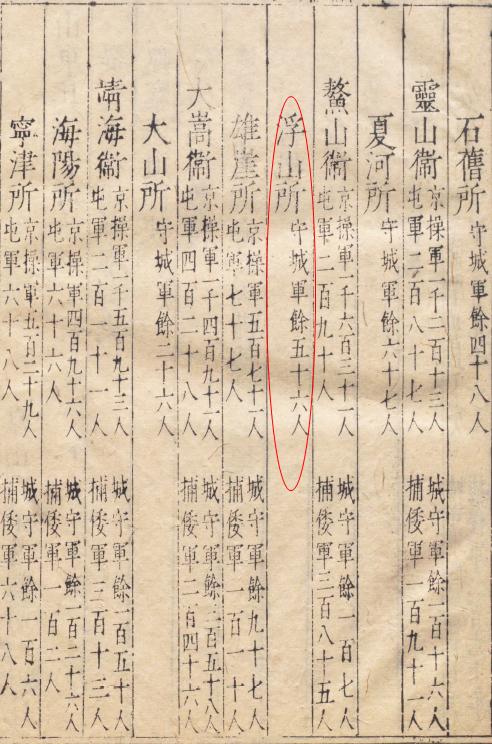 石舊所 守城軍餘四十八人
靈山衞 京操軍一千二百十三人 城守軍餘一百十六人
屯軍二百八十七人 捕倭軍一百九十一人
夏河所 守城軍餘六十七人
鰲山衞 京操軍一千六百三十一人 城守軍餘一百七人
屯軍二百九十人 捕倭軍三百八十五人
浮山所 守城軍餘五十六人
雄崖所 京操軍五百七十一人 城守軍餘九十七人
屯軍七十七人 捕倭軍一百一十人
大嵩衞 京操軍一千四百九十一人 城守軍餘二百五十八人
屯軍四百四十人 捕倭軍二百四十六人
大山所 守城軍餘二十六人
靖海衞 京操軍一千五百九十三人 城守軍餘一百五十人
屯軍二百一十一人 捕倭軍三百十三人
海陽所 京操軍四百九十六人 城守軍餘一百二十六人
屯軍六十六人 捕倭軍一百二人
寧津所 京操軍五百二十九人 城守軍餘一百六人
屯軍六十八人 捕倭軍六十八人